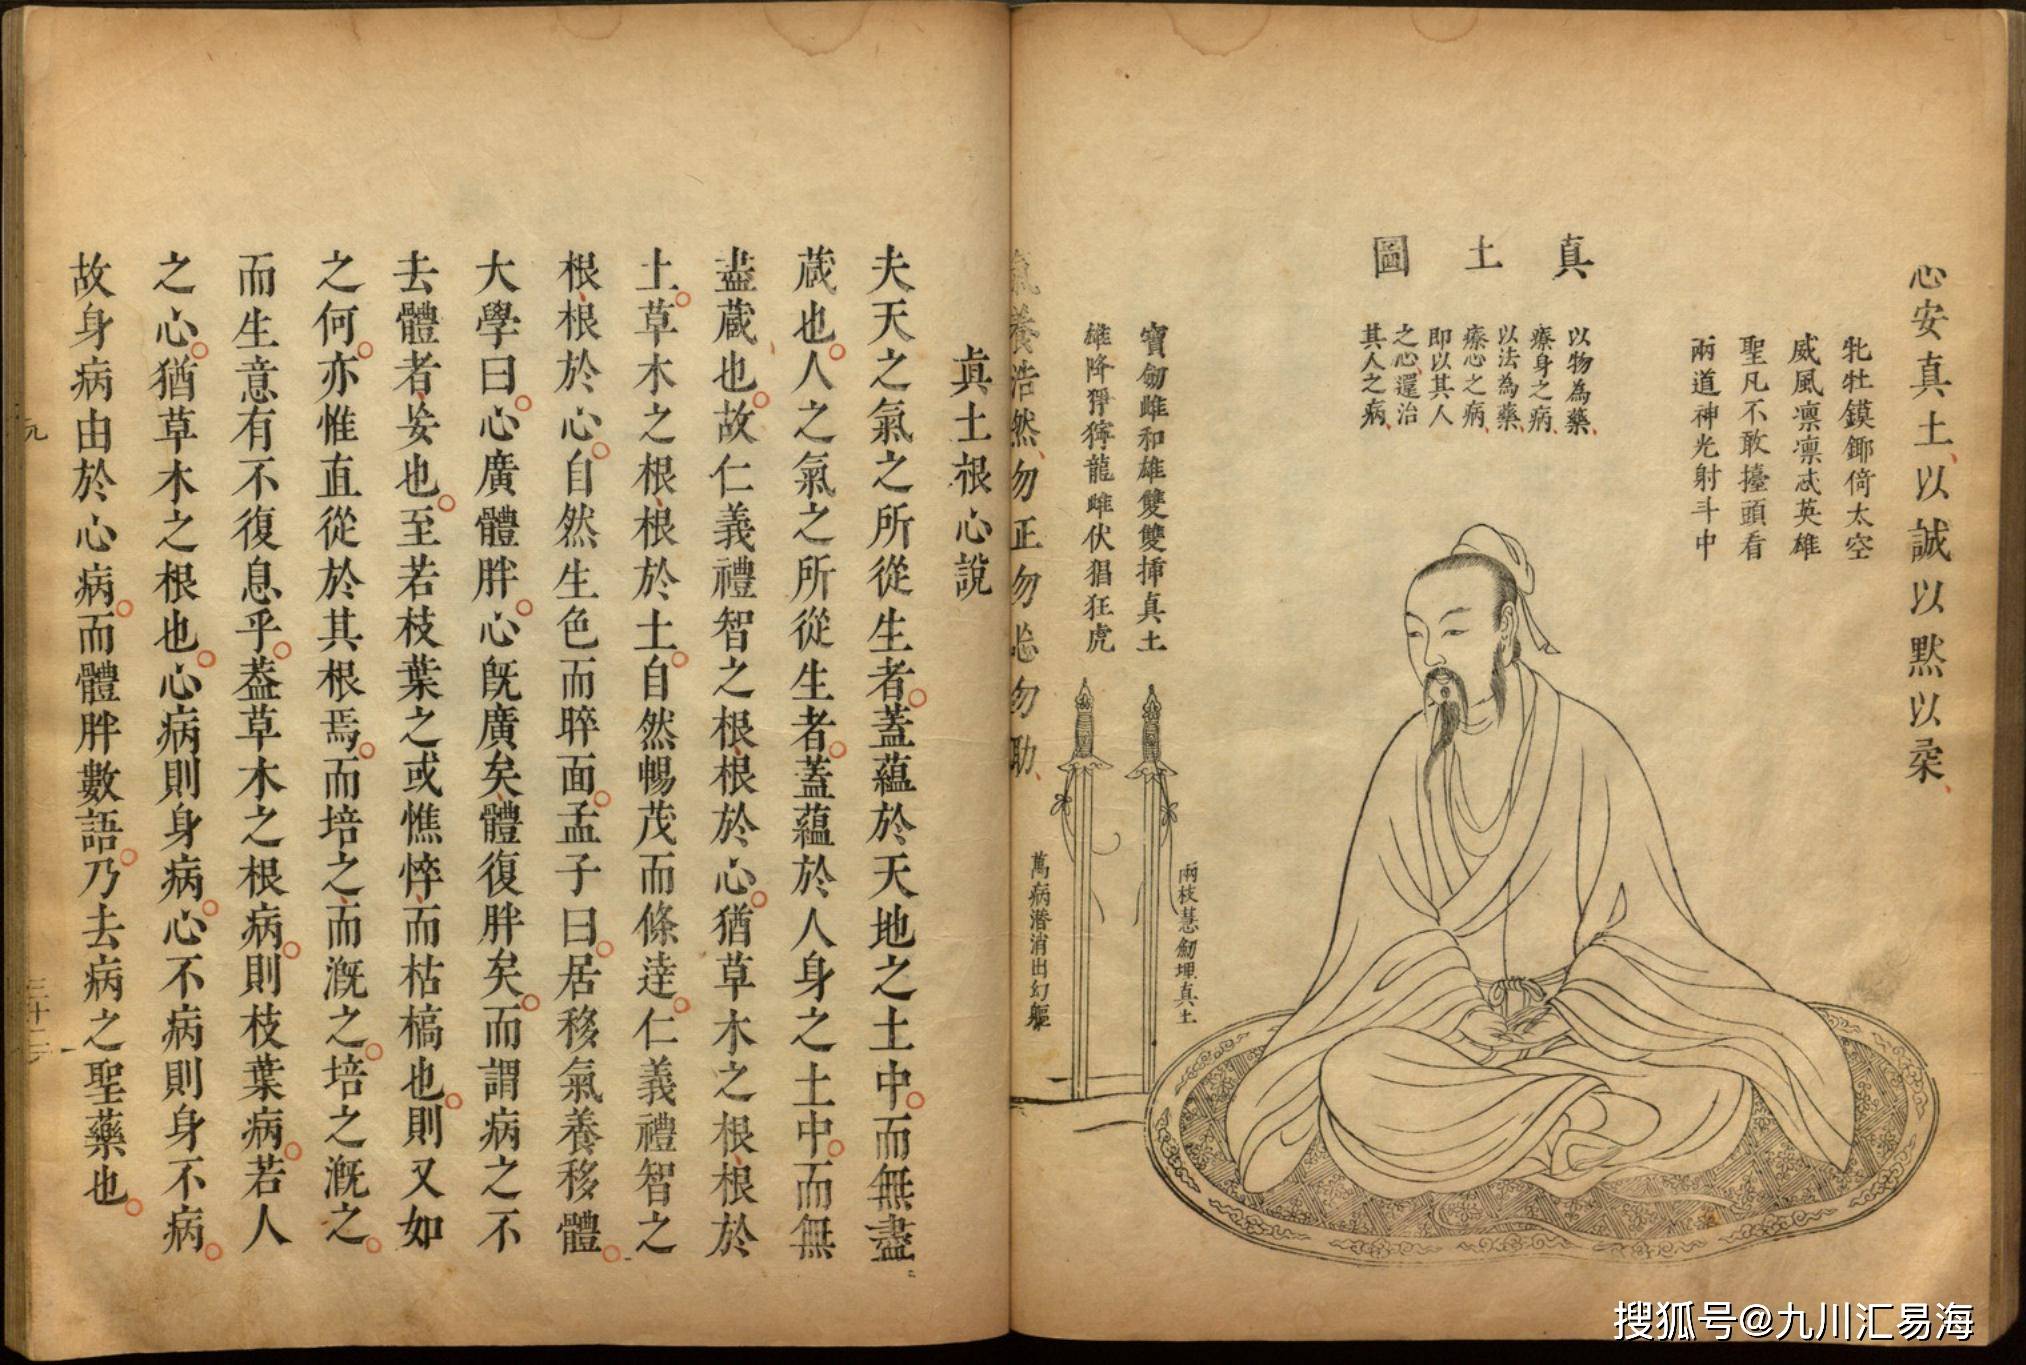 心安真土以誠以默以柔
牝牡鏌鋣倚太空
威風凛凛忒英雄
聖凡不敢擡頭看
兩道神光射斗中
真土圖
以物為藥
療身之病
以法為藥
療心之病
即以其人
之心還治
其人之病
寶劒雌和雄雙雙揷真土
雄降猙獰龍雌伏猖狂虎
兩枝慧劒埋真土
萬病潜消出幻軀
氣養浩然勿正勿忘勿助
眞土根心說
夫天之氣之所從生者蓋蘊於天地之土中而無盡
蔵也人之氣之所從生者蓋蘊於人身之土中而無
盡蔵也故仁義禮智之根根於心猶草木之根根於
土草木之根根於土自然暢茂而條達仁義禮智之
根根於心自然生色而睟面孟子曰居移氣養移體
大學曰心廣體胖心旣廣矣體復胖矣而謂病之不
去體者妄也至若枝葉之或憔悴而枯槁也則又如
之何亦惟直從於其根焉而培之而溉之培之溉之
而生意有不復息乎葢草木之根病則枝葉病若人
之心猶草木之根也心病則身病心不病則身不病
故身病由於心病而體胖數語乃去病之聖藥也
元
三十二
搜狐号@九川汇易海